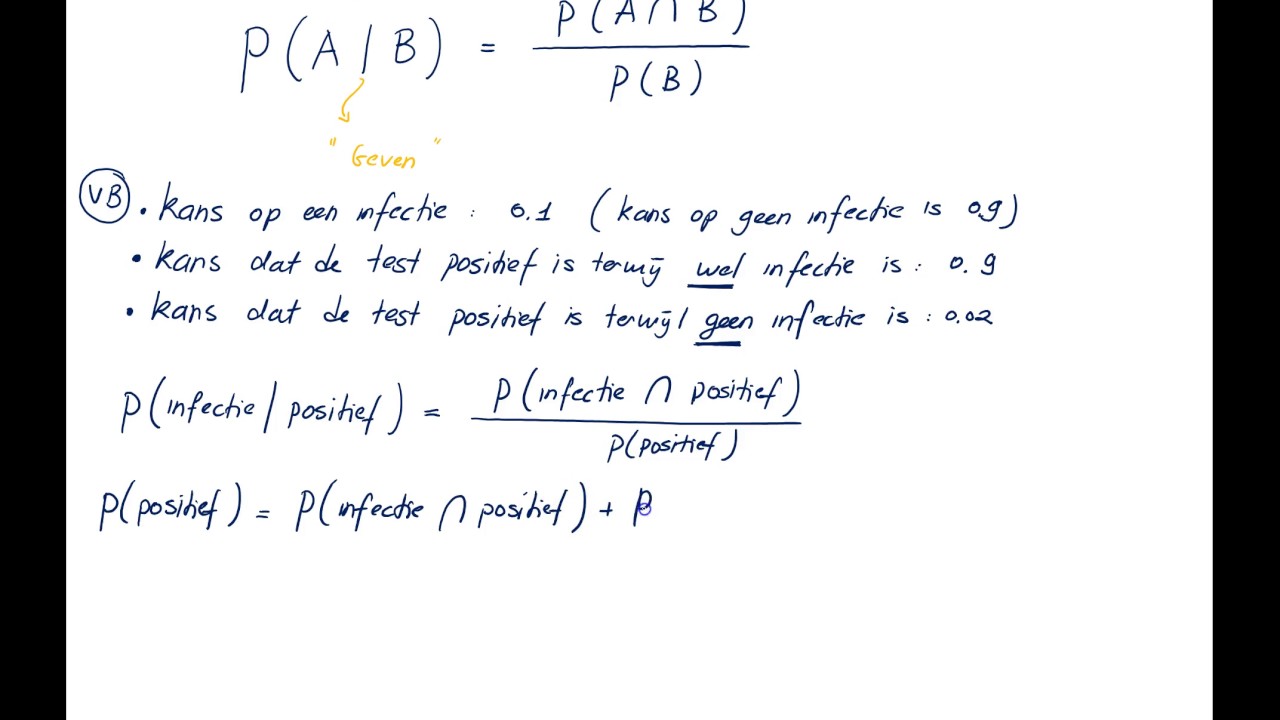 P(A|B) = P(A ∩ B) / P(B)
" Geven "
VB • kans op een infectie : 0.1 (kans op geen infectie is 0.9)
• kans dat de test positief is terwij wel infectie is : 0.9
• kans dat de test positief is terwijl geen infectie is : 0.02
P(infectie | positief) = P(infectie ∩ positief) / P(positief)
P(positief) = P(infectie ∩ positief) + P